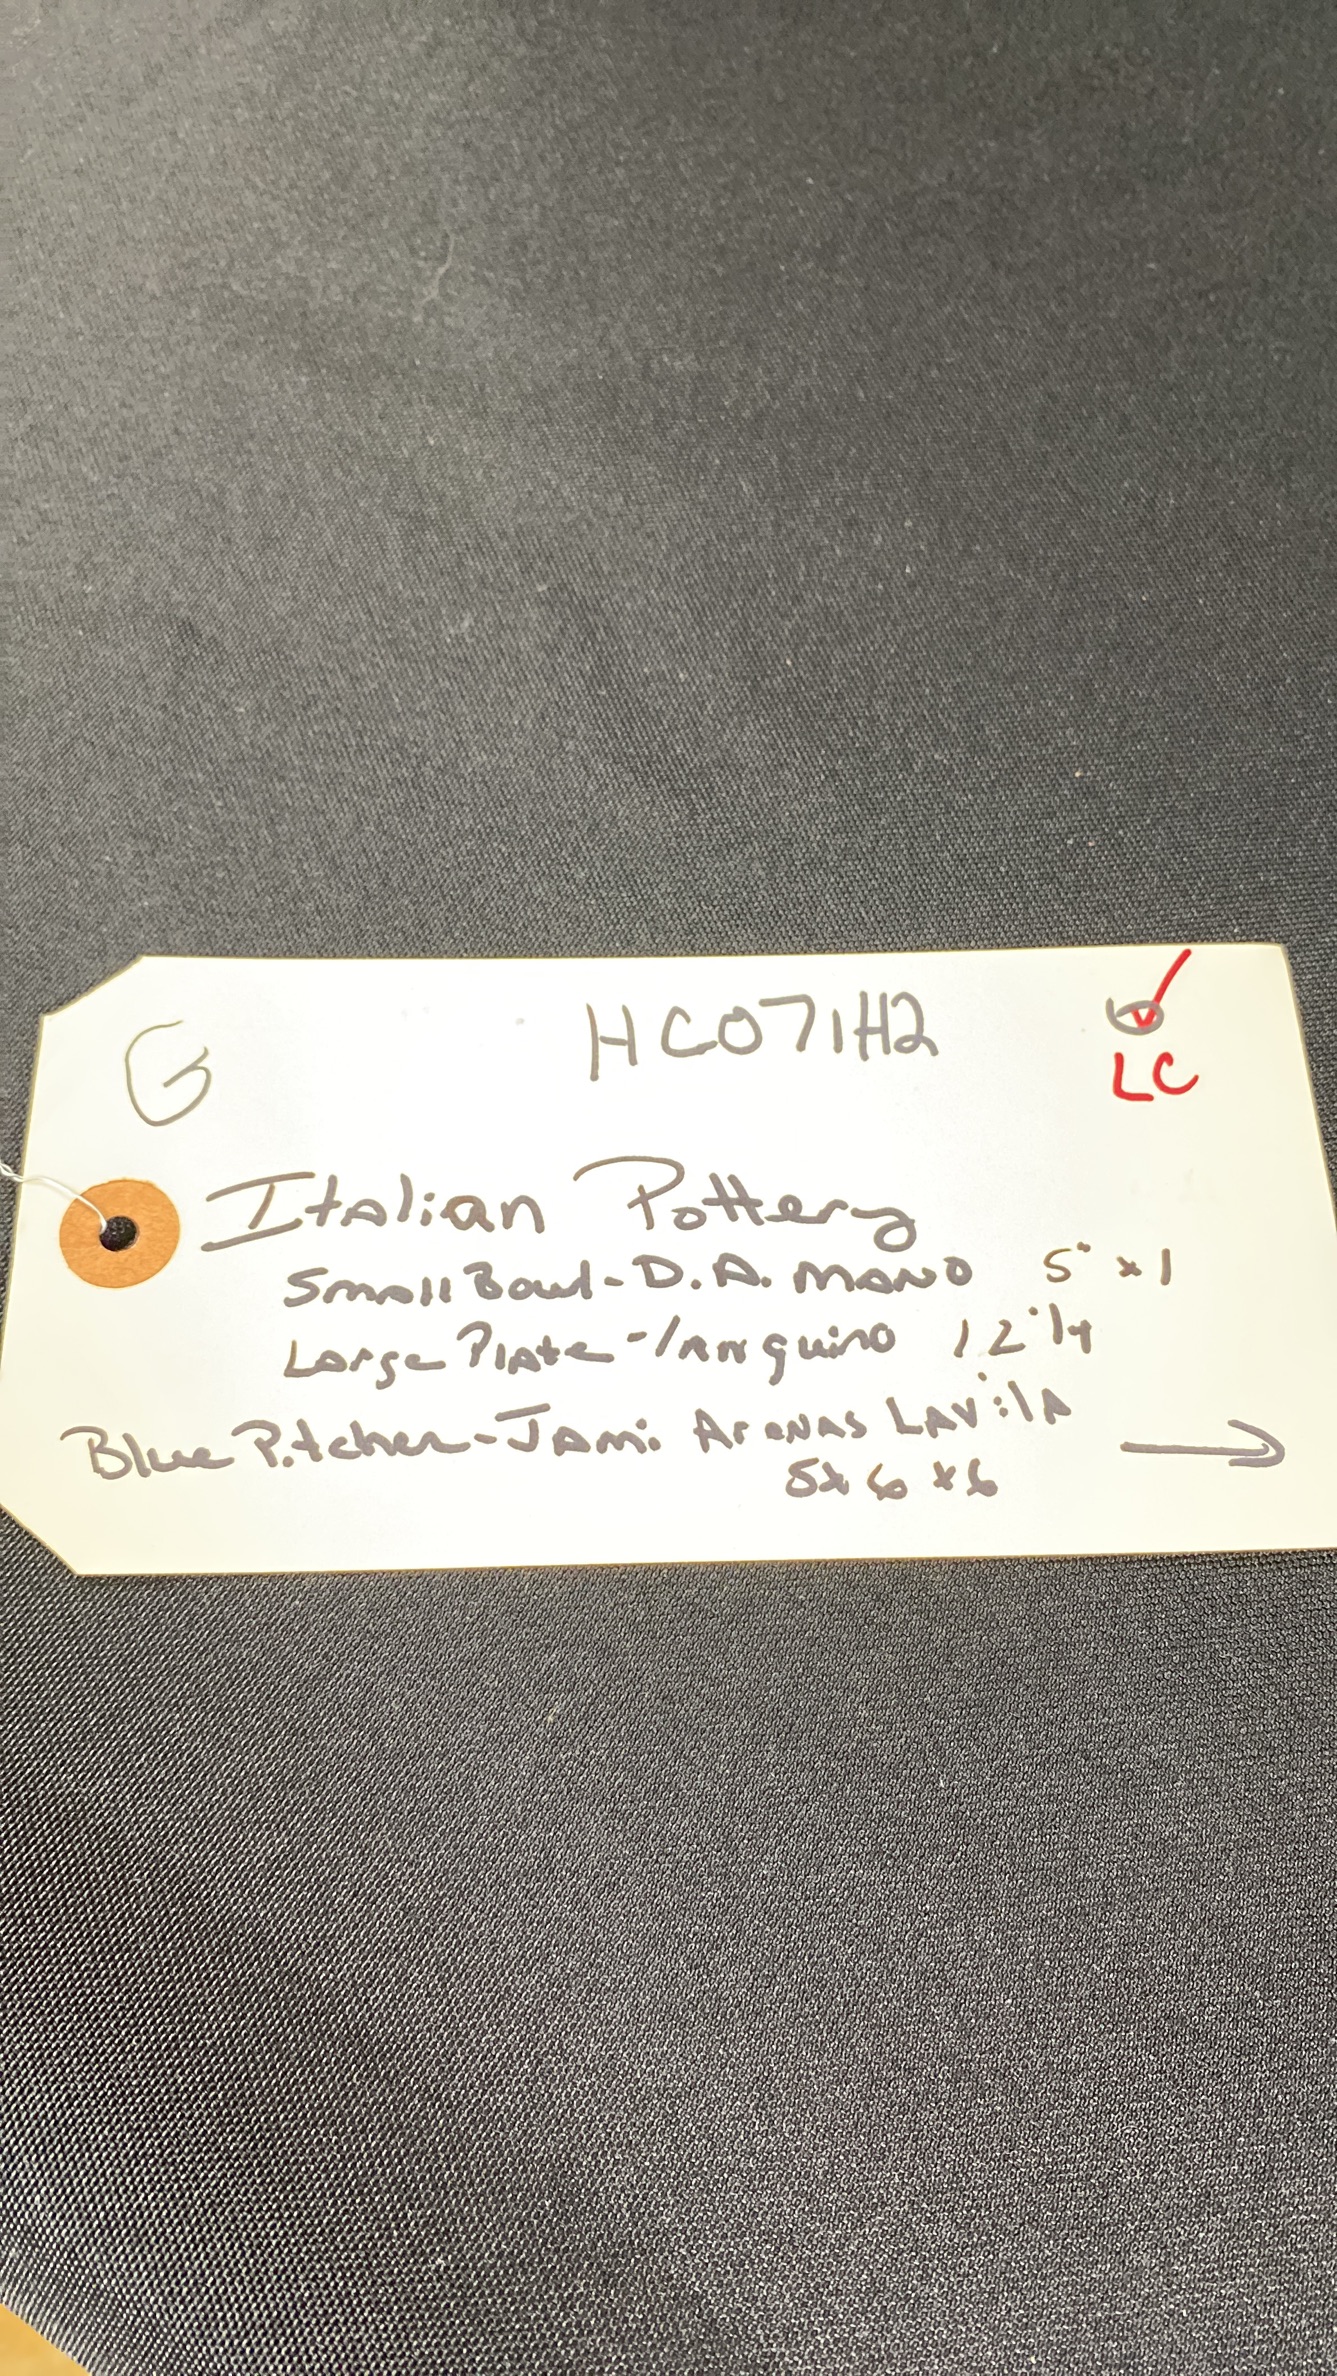 G HC071H2
LC
Italian Pottery
Small Bowl - D.A. MANO 5" x 1
Large Plate - 12" 1/4
Blue Pitcher - Jami Arenas LAVilA
5x6x6